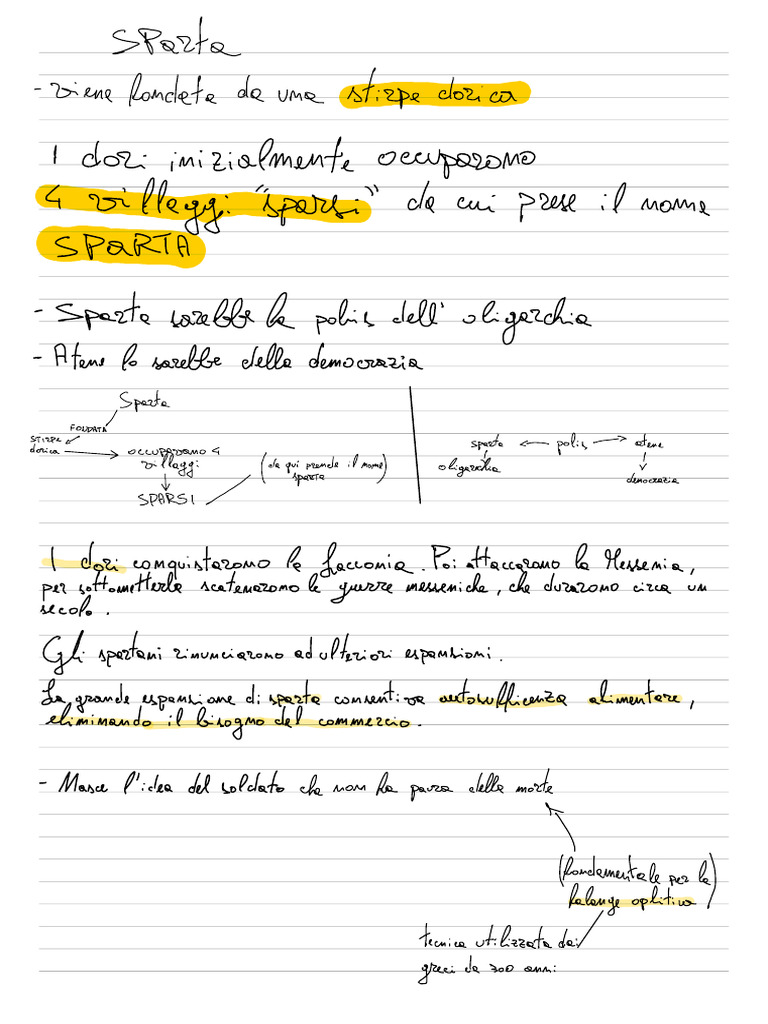 SParta
- viene fondata da una stirpe dorica
I dori inizialmente occuparono
4 villaggi "sparsi" da cui prese il nome
SPARTA
- Sparta sarebbe la polis dell' oligarchia
- Atene lo sarebbe della democrazia
Sparta
FONDATA
STIRPE
dorica
occupavano 4
villaggi
SPARSI
(da qui prende il nome
sparta)
sparta
polis
atene
oligarchia
democrazia
I dori conquistarono la Lacconia. Poi attaccarono la Messenia,
per sottometterla scatenarono le guerre messeniche, che durarono circa un
secolo.
Gli spartani rinunciarono ad ulteriori espansioni.
La grande espansione di sparta consentiva autosufficenza alimentare,
eliminando il bisogno del commercio.
- Nasce l'idea del soldato che non ha paura della morte
(fondamentale per la
falange oplitica)
tecnica utilizzata dai
greci da 300 anni